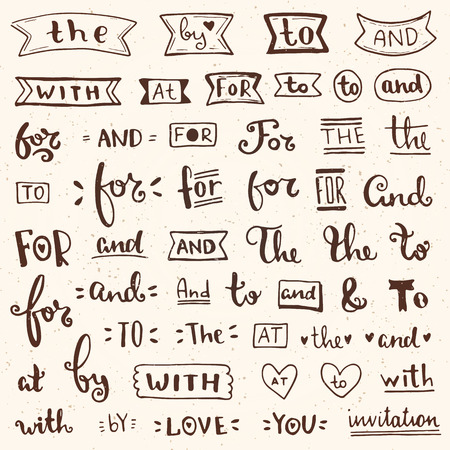 the by to AND
WITH At FOR to to and
for AND FOR For THE the
TO for for for FOR And
FOR and AND The the to
for and And to and & To
TO The AT the and
at by WITH AT to with
with by LOVE YOU invitation